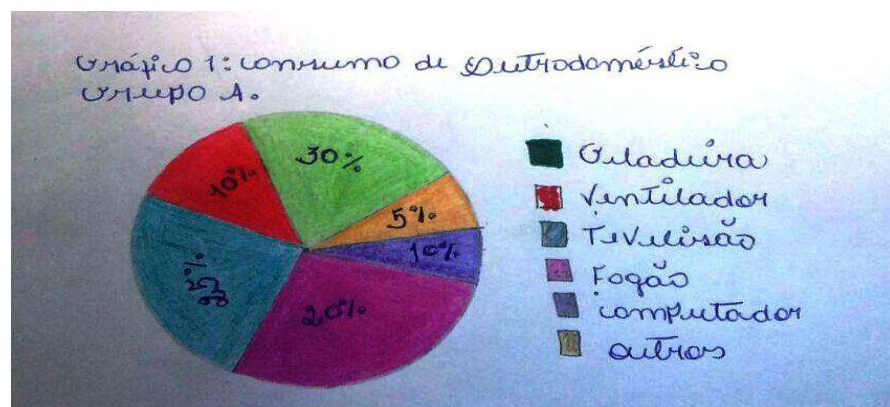 Gráfico 1: consumo de Eletrodoméstico
Grupo A.
30%
10%
5%
10%
25%
20%
Geladeira
Ventilador
Televisão
Fogão
computador
outros